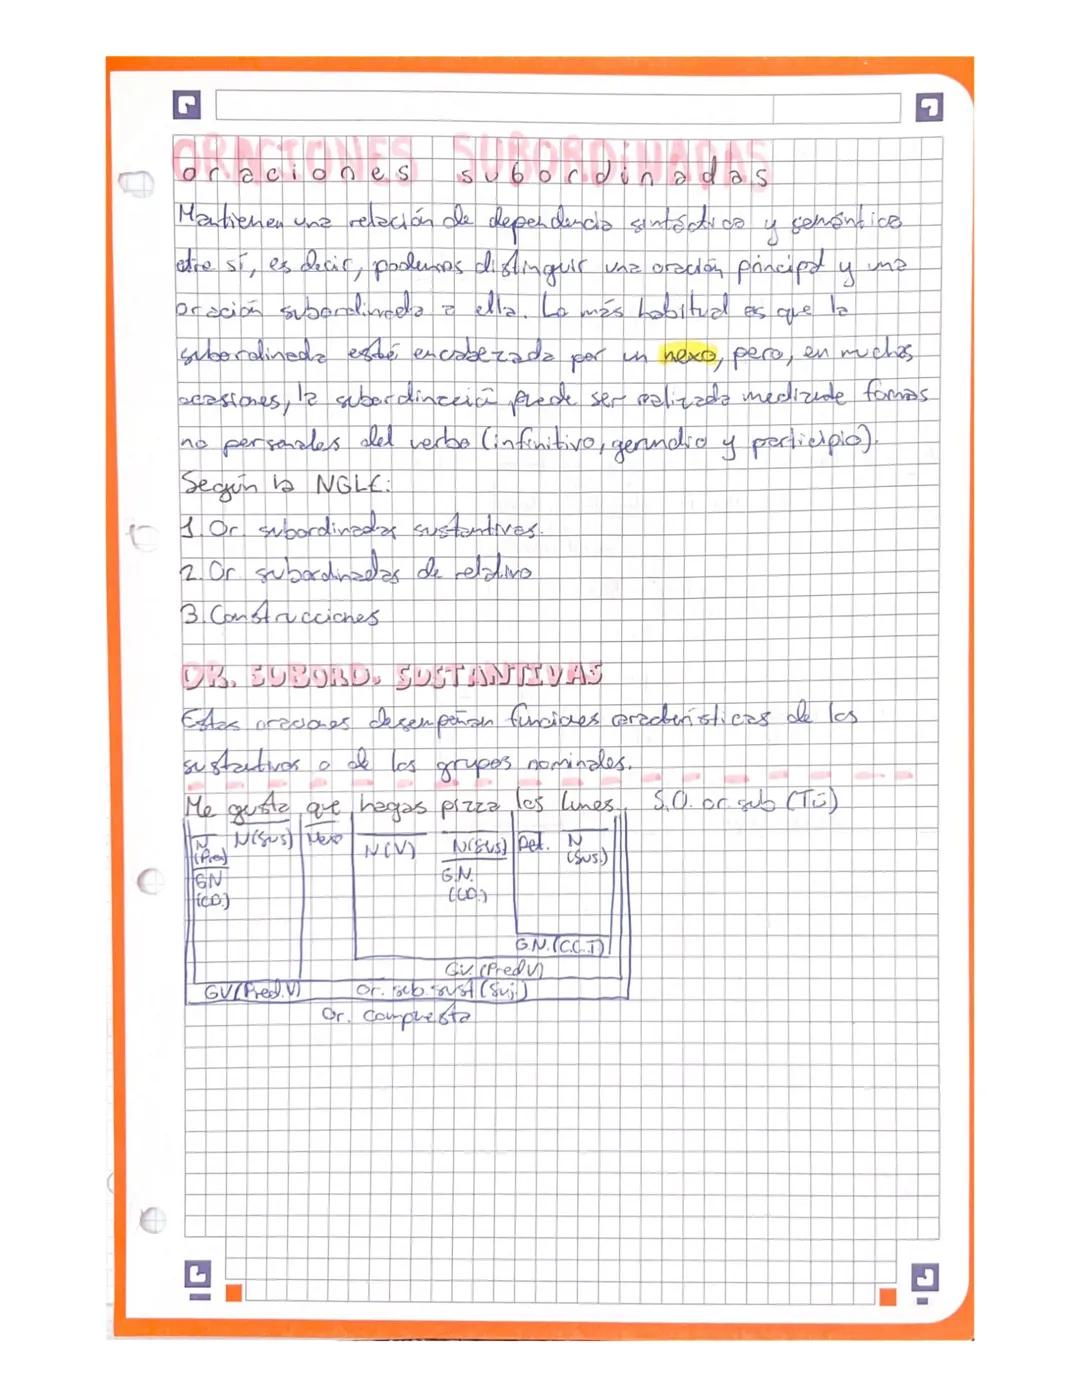 ORACIONES SUBORDINADAS
oraciones subordinadas
Mantienen una relación de dependencia sintáctica y semántica
entre sí, es decir, podemos distinguir una oración principal y una
oración subordinada a ella. Lo más habitual es que la
subordinada esté encabezada por un nexo, pero, en muchas
ocassiones, la subordinación puede ser realizada mediante formas
no personales del verbo (infinitivo, gerundio y participio).
Según la NGLE:
1. Or. subordinadas sustantivas.
2. Or. subordinadas de relativo
3. Construcciones
OR. SUBORD. SUSTANTIVAS
Estas oraciones desempeñan funciones características de los
sustantivos o de los grupos nominales.
Me gusta que hagas pizza los lunes. S.O. or. sub (Tú)
N (Pron) N(sus) Nexo N(V) N(sus) Det. N (sus.)
GN (CD.) G.N. (CD.)
G.N. (C.C.T)
GV. (Pred V)
GV (Pred. V) Or. sub. sust (Suj.)
Or. Compuesta